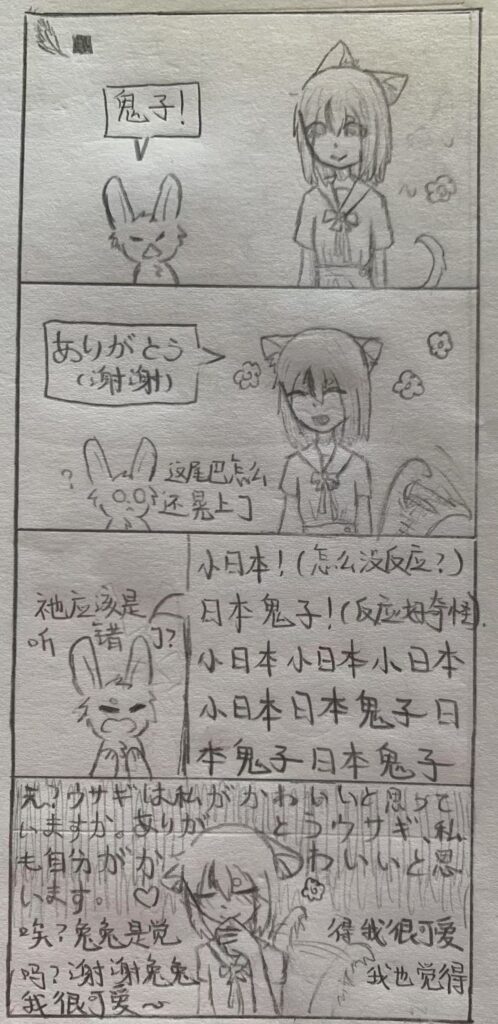 鬼子!
ありがとう
(谢谢)
?
这尾巴怎么
还晃上了
祂应该是
听错了?
小日本!(怎么没反应?)
日本鬼子!(反应好奇怪).
小日本小日本小日本
小日本日本鬼子日
本鬼子日本鬼子
え?ウサギは私がかわいいと思って
いますか。ありがとうウサギ、私
も自分がかわいいと思
います。♡
唉?兔兔是觉得我很可爱
吗?谢谢兔兔我也觉得
我很可爱~